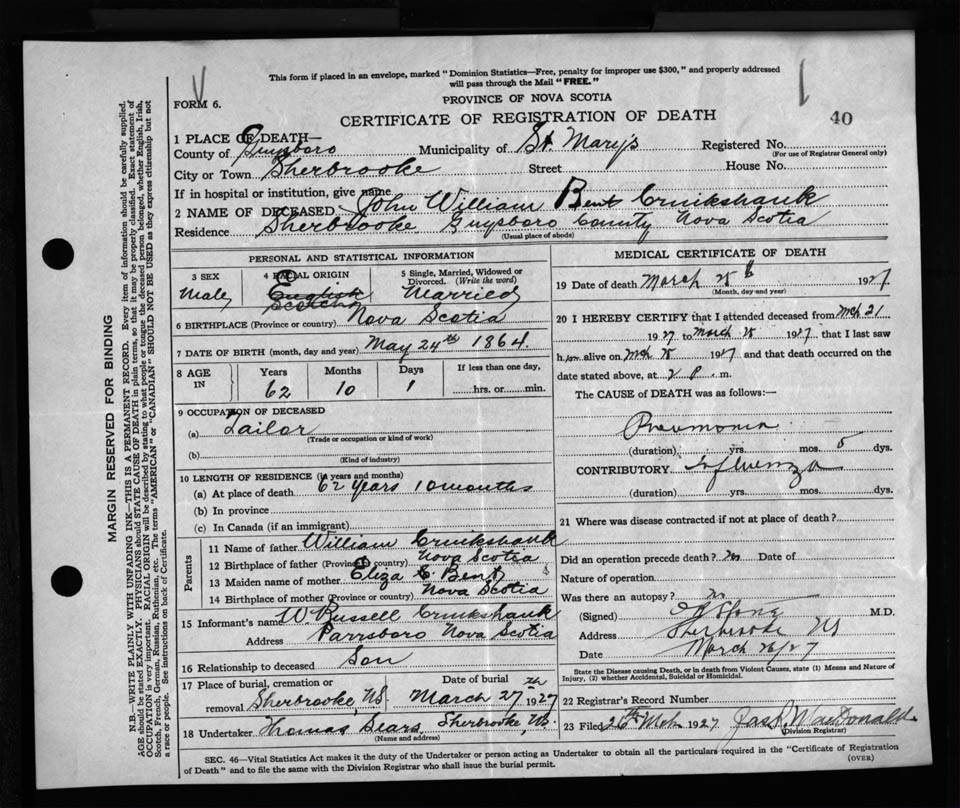 This form if placed in an envelope, marked "Dominion Statistics—Free, penalty for improper use $300," and properly addressed
will pass through the Mail "FREE."
FORM 6.
PROVINCE OF NOVA SCOTIA
CERTIFICATE OF REGISTRATION OF DEATH
40
1 PLACE OF DEATH—
County of Guysboro Municipality of St. Mary's Registered No.
(For use of Registrar General only)
City or Town Sherbrooke Street House No.
If in hospital or institution, give name
2 NAME OF DECEASED John William Bent Cruikshank
Residence Sherbrooke Guysboro County Nova Scotia
(Usual place of abode)
PERSONAL AND STATISTICAL INFORMATION
3 SEX
Male
4 RACIAL ORIGIN
English
Scotch
5 Single, Married, Widowed or Divorced. (Write the word)
Married
6 BIRTHPLACE (Province or country) Nova Scotia
7 DATE OF BIRTH (month, day and year) May 24th 1864
8 AGE IN
Years Months Days If less than one day,
62 10 1 hrs. or min.
9 OCCUPATION OF DECEASED
(a) Tailor
(Trade or occupation or kind of work)
(b)
(Kind of industry)
10 LENGTH OF RESIDENCE (in years and months)
(a) At place of death 62 years 10 months
(b) In province
(c) In Canada (if an immigrant)
Parents
11 Name of father William Cruikshank
12 Birthplace of father (Province or country) Nova Scotia
13 Maiden name of mother Eliza Bent
14 Birthplace of mother (Province or country) Nova Scotia
15 Informant's name W Russell Cruikshank
Address Parrsboro Nova Scotia
16 Relationship to deceased Son
17 Place of burial, cremation or removal Sherbrooke, NS
Date of burial
March 27th 1927
18 Undertaker Thomas Sears, Sherbrooke, NS.
(Name and address)
MEDICAL CERTIFICATE OF DEATH
19 Date of death March 25th 1927
(Month, day and year)
20 I HEREBY CERTIFY that I attended deceased from Mch 21
1927 to March 25 1927 that I last saw
him alive on Mch 25 1927 and that death occurred on the
date stated above, at 2 P. m.
The CAUSE of DEATH was as follows:—
Pneumonia
(duration) yrs. mos. 5 dys.
CONTRIBUTORY. Influenza
(duration) yrs. mos. dys.
21 Where was disease contracted if not at place of death?
Did an operation precede death? No Date of
Nature of operation
Was there an autopsy? no
(Signed) M.D.
Address Sherbrooke NS
Date March 26/27
State the Disease causing Death, or in death from Violent Causes, state (1) Means and Nature of
Injury, (2) whether Accidental, Suicidal or Homicidal.
22 Registrar's Record Number
23 Filed 26th Mch 1927 Jas. P. MacDonald
(Division Registrar)
SEC. 46—Vital Statistics Act makes it the duty of the Undertaker or person acting as Undertaker to obtain all the particulars required in the "Certificate of Registration
of Death" and to file the same with the Division Registrar who shall issue the burial permit.
(OVER)
MARGIN RESERVED FOR BINDING
N.B.—WRITE PLAINLY WITH UNFADING INK—THIS IS A PERMANENT RECORD. Every item of information should be carefully supplied.
AGE should be stated EXACTLY. PHYSICIANS should STATE CAUSE OF DEATH in plain terms, so that it may be properly classified. Exact statement of
OCCUPATION is very important. RACIAL ORIGIN will be described by stating to what people or tongue the deceased person belonged, whether English, Irish,
Scotch, French, German, Russian, Ruthenian, etc. The terms "AMERICAN" or "CANADIAN" SHOULD NOT BE USED as they express citizenship but not
a race or people. See instructions on back of Certificate.